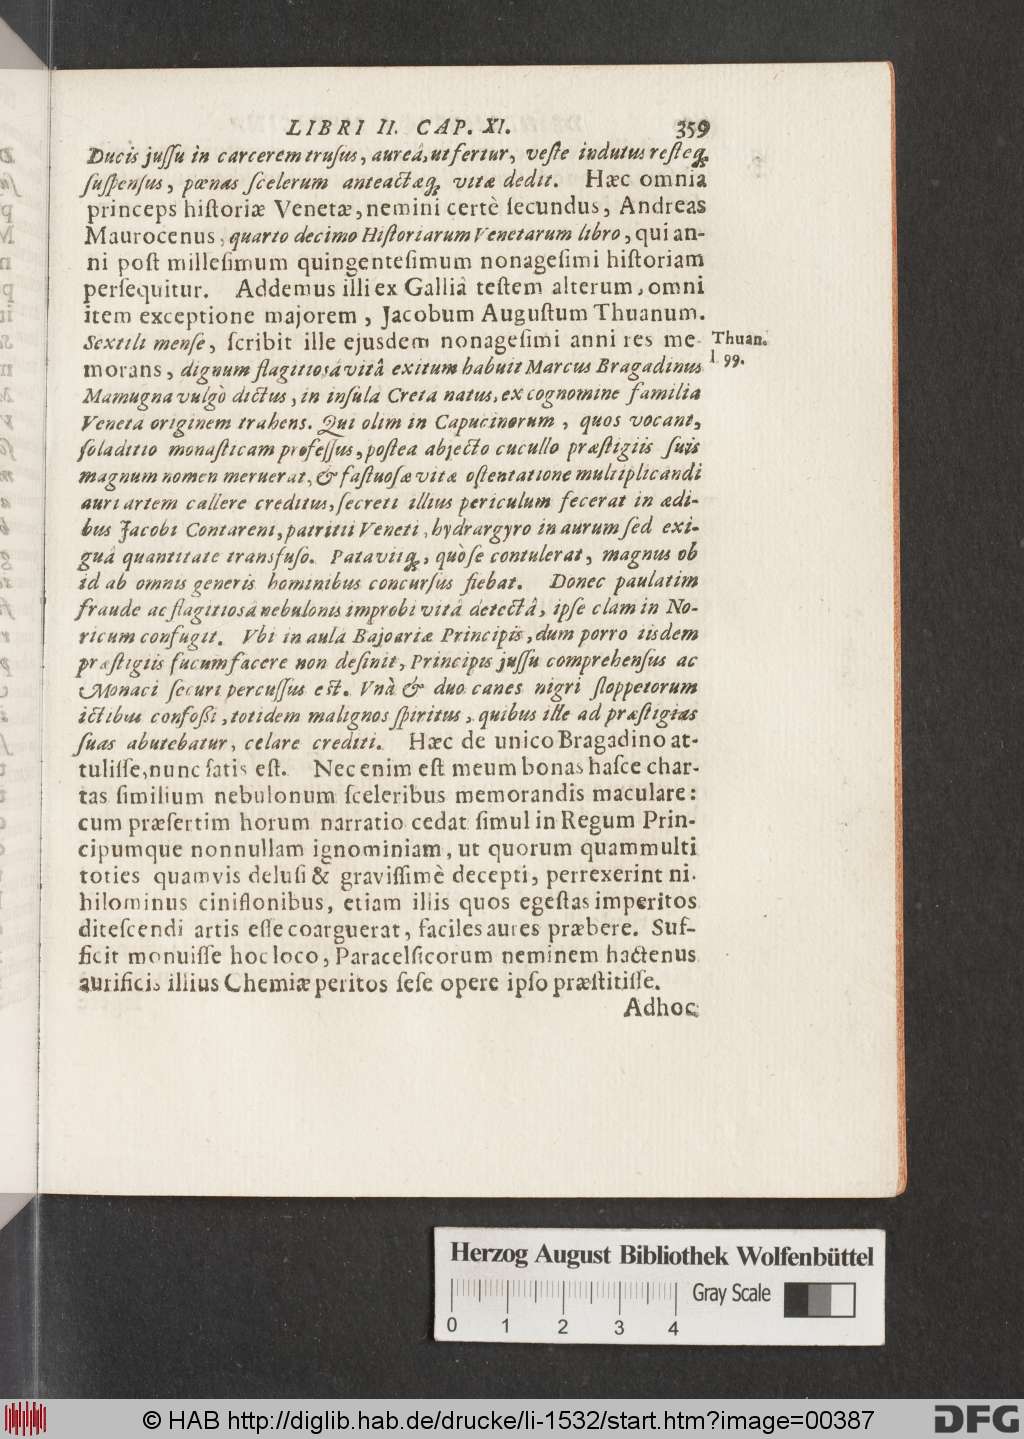 LIBRI II. CAP. XI. 359
Ducis juſſu in carcerem truſus, aureâ, ut fertur, veſte indutus reſteq;
ſuſpenſus, pœnas ſcelerum anteactæq; vitæ dedit. Hæc omnia
princeps hiſtoriæ Venetæ, nemini certè ſecundus, Andreas
Maurocenus, quarto decimo Hiſtoriarum Venetarum libro, qui an-
ni poſt milleſimum quingenteſimum nonageſimi hiſtoriam
perſequitur. Addemus illi ex Galliâ teſtem alterum, omni
item exceptione majorem, Jacobum Auguſtum Thuanum.
Sextili menſe, ſcribit ille ejusdem nonageſimi anni res me-
Thuan.
l 99.
morans, dignum flagitiosâ vitâ exitum habuit Marcus Bragadinus
Mamugna vulgò dictus, in inſula Creta natus, ex cognomine familia
Veneta originem trahens. Qui olim in Capucinorum, quos vocant,
ſoladitio monaſticam profeſſus, poſtea abjecto cucullo præſtigiis ſuis
magnum nomen meruerat, & faſtuoſæ vitæ oſtentatione multiplicandi
auri artem callere creditus, ſecreti illius periculum fecerat in ædi-
bus Jacobi Contareni, patritii Veneti, hydrargyro in aurum ſed exi-
guâ quantitate transfuſo. Pataviiq;, quò ſe contulerat, magnus ob
id ab omnis generis hominibus concurſus fiebat. Donec paulatim
fraude ac flagitiosâ nebulonis improbi vitâ detectâ, ipſe clam in No-
ricum confugit. Vbi in aulâ Bajoariæ Principis, dum porro iisdem
præſtigiis fucum facere non deſinit, Principis juſſu comprehenſus ac
Monaci ſecuri percuſſus est. Vnà & duo canes nigri ſloppetorum
ictibus confoßi, totidem malignos ſpiritus, quibus ille ad præſtigias
ſuas abutebatur, celare crediti. Hæc de unico Bragadino at-
tuliſſe, nunc ſatis eſt. Nec enim eſt meum bonas haſce char-
tas ſimilium nebulonum ſceleribus memorandis maculare:
cum præſertim horum narratio cedat ſimul in Regum Prin-
cipumque nonnullam ignominiam, ut quorum quam multi
toties quamvis deluſi & graviſſimè decepti, perrexerint ni-
hilominus ciniflonibus, etiam illis quos egeſtas imperitos
diteſcendi artis eſſe coarguerat, faciles aures præbere. Suf-
ficit monuiſſe hoc loco, Paracelſicorum neminem hactenus
aurificis illius Chemiæ peritos ſeſe opere ipſo præſtitiſſe.
Adhoc
Herzog August Bibliothek Wolfenbüttel
Gray Scale
0 1 2 3 4
© HAB http://diglib.hab.de/drucke/li-1532/start.htm?image=00387
DFG